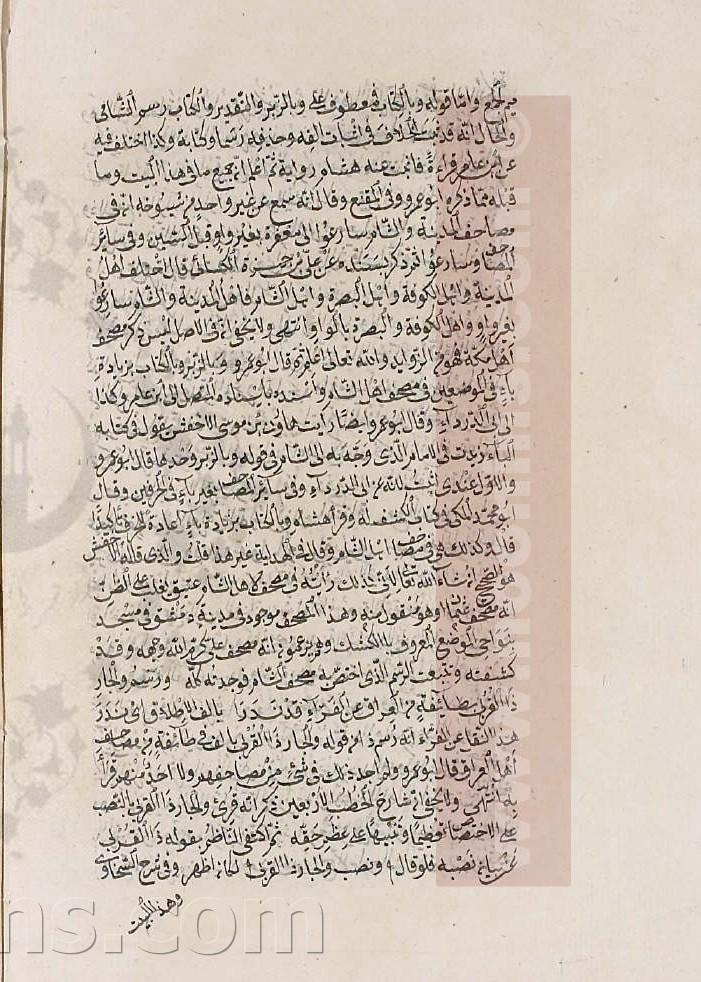 ميم الجمع واما قوله وبالكتاب فمعطوف على وبالزبر والتقدير والكتاب رسم الشامي
والحال انه قد ثبت الخلاف في اثبات الفه وحذفه رسما وكتابة وكذا اختلف فيه
عن ابن عامر قراءة فاثبت عنه هشام رواية ثم اعلم ان جميع ما في هذا البيت وما
قبله مما ذكره ابو عمرو في المقنع وقال انه سمع عن غير واحد من شيوخه ان في
مصاحف المدينة والشام سارعوا الى مغفرة بغير واو قبل السين وفي سائر
المصاحف وسارعوا ثم ذكر بسنده عن علي بن حمزة الكسائي قال اختلف اهل
المدينة واهل الكوفة واهل البصرة واهل الشام فاهل المدينة والشام سارعوا
بغير واو واهل الكوفة والبصرة بالواو انتهى ولا يخفى ان في الاصل ليس ذكر مصحف
اهل مكة فهو من الزوايد والله تعالى اعلم ثم قال ابو عمرو وبالزبر وبالكتاب بزيادة
باء في الموضعين في مصحف اهل الشام واسنده باسناده المتصل الى ابن عامر وكذا
الى ابي الدرداء وقال ابو عمرو ايضا رايت هارون بن موسى الاخفش يقول في كتابه
الباء زيدت في الامام الذي وجه به الى الشام في قوله وبالزبر وحدها قال ابو عمرو
والاول عندي اثبت لانه عن ابي الدرداء وفي سائر المصاحف بغير باء في الحرفين وقال
ابو محمد المكي في كتاب الكشف له وقرأ هشام وبالكتاب بزيادة باء اعادة للحرف تاكيدا
قال وكذلك هي في مصاحف اهل الشام وقال في الهداية غير هذا قلت والذي قاله الاخفش
هو الصحيح ان شاء الله تعالى لاني كذلك رايته في مصحف لاهل الشام عتيق يغلب على الظن
انه مصحف عثمان او هو منقول منه وهذا المصحف موجود في مدينة دمشق في مسجد
بنواحي الموضع المعروف بالكشك وهم يزعمون انه مصحف علي كرم الله وجهه وقد
كشفته وتتبعت الرسم الذي اختص به مصحف الشام فوجدته كله ورسم والجار
ذا القربى بطائفة من العراق عن الفراء قد ندرا بالف الاطلاق اي ندر
هذا النقل عن الفراء انه رسم ذا من قوله والجار ذا القربى بالف في طائفة من مصاحف
اهل العراق قال ابو عمرو ولم اجد ذلك في شئ من مصاحفهم ولا احد منهم قرأ
به انتهى ولا يخفى ان شارح الخطب الاربعين ذكر انه قرئ والجار ذا القربى بالنصب
على الاختصاص تعظيما وتنبيها على عظم حقه ثم اكتفى الناظم بقوله ذا القربى
عن بيان نصبه فلو قال ونصب والجار ذا القربى لكان اظهر وفي شرح السخاوي
وهذا البيت